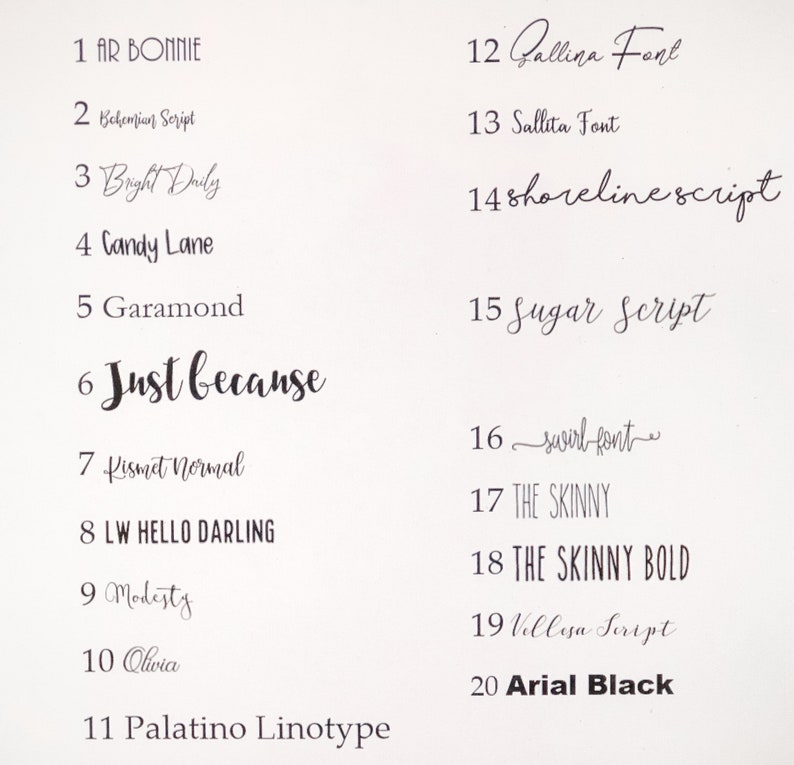 1 AR BONNIE
2 Bohemian Script
3 Bright Daily
4 Candy Lane
5 Garamond
6 Just because
7 Kismet Normal
8 LW HELLO DARLING
9 Modesty
10 Olivia
11 Palatino Linotype
12 Sallina Font
13 Sallita Font
14 shoreline script
15 Sugar Script
16 swirl font
17 THE SKINNY
18 THE SKINNY BOLD
19 Vellesa Script
20 Arial Black